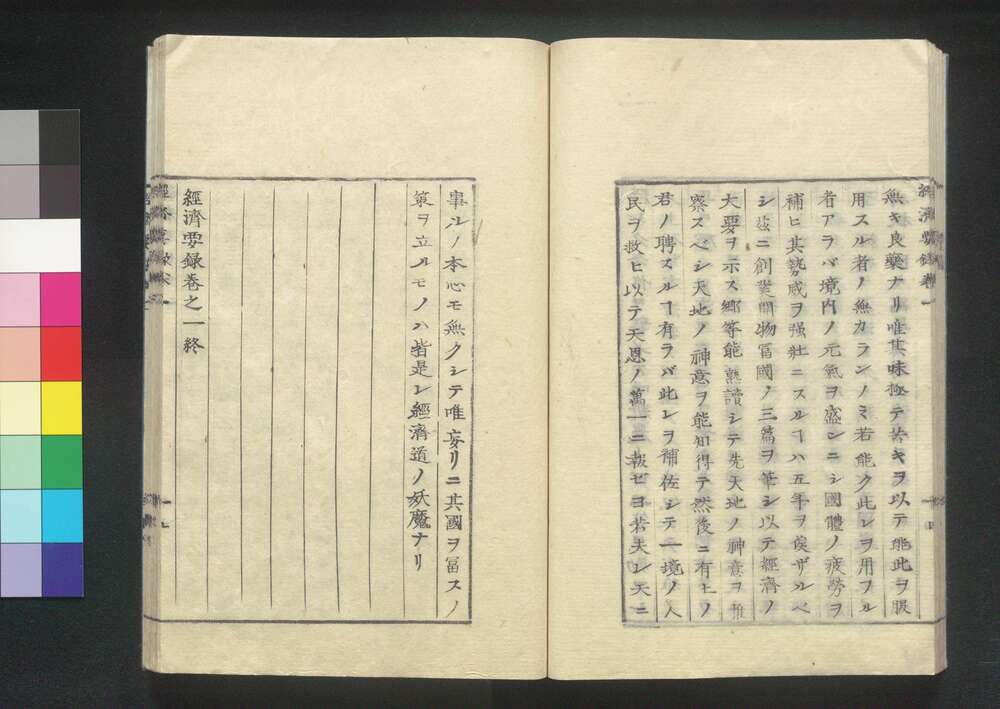 經濟要録卷一
無キ良藥ナリ唯其味極テ苦キヲ以テ能此ヲ服
用スル者ノ無カランノミ若能ク此レヲ用フル
者アラバ境内ノ元氣ヲ盛ンニシ國體ノ疲勞ヲ
補ヒ其勢威ヲ强壯ニスルヿハ五年ヲ俟ザルベ
シ玆ニ創業開物冨國ノ三篇ヲ筆シ以テ經濟ノ
大要ヲ示ス郷等能熟讀シテ先天地ノ神意ヲ推
察スベシ天地ノ神意ヲ能知得テ然後ニ有土ノ
君ノ聘スルヿ有ラバ此レヲ補佐シテ一境ノ人
民ヲ救ヒ以テ天恩ノ萬一ニ報ゼヨ若夫レ天ニ
事ルノ本心モ無クシテ唯妄リニ其國ヲ冨スノ
策ヲ立ルモノハ皆是レ經濟道ノ妖魔ナリ
經濟要録卷之一終